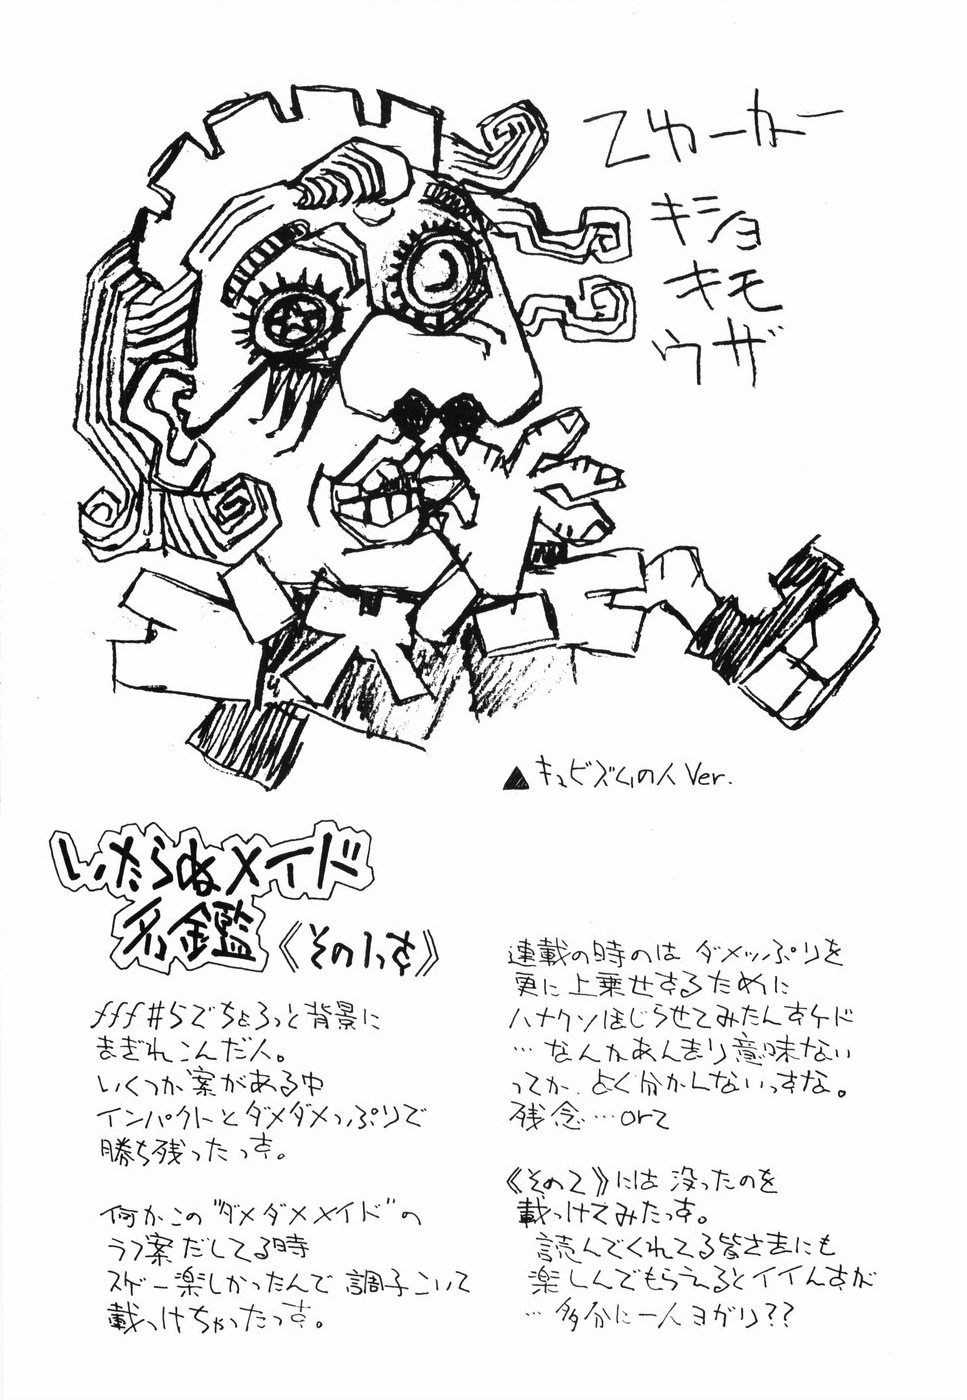 キショ
キモ
ウザ
▲キュビズムの人 Ver.
いたらぬメイド
名鑑《その1っす》
fff#5でちょろっと背景に
まぎれこんだ人。
いくつか案がある中
インパクトとダメダメっぷりで
勝ち残ったっす。
何かこの"ダメダメメイド"の
ラフ案だしてる時
スゲー楽しかったんで調子こいて
載っけちゃったっす。
連載の時のはダメッぷりを
更に上乗せするために
ハナクソほじらせてみたんすケド
…なんかあんまり意味ない
ってか、よく分かんないっすな。
残念…orz
《その2》には没ったのを
載っけてみたっす。
読んでくれてる皆さまにも
楽しんでもらえるとイイんすが
…多分に一人ヨガリ??